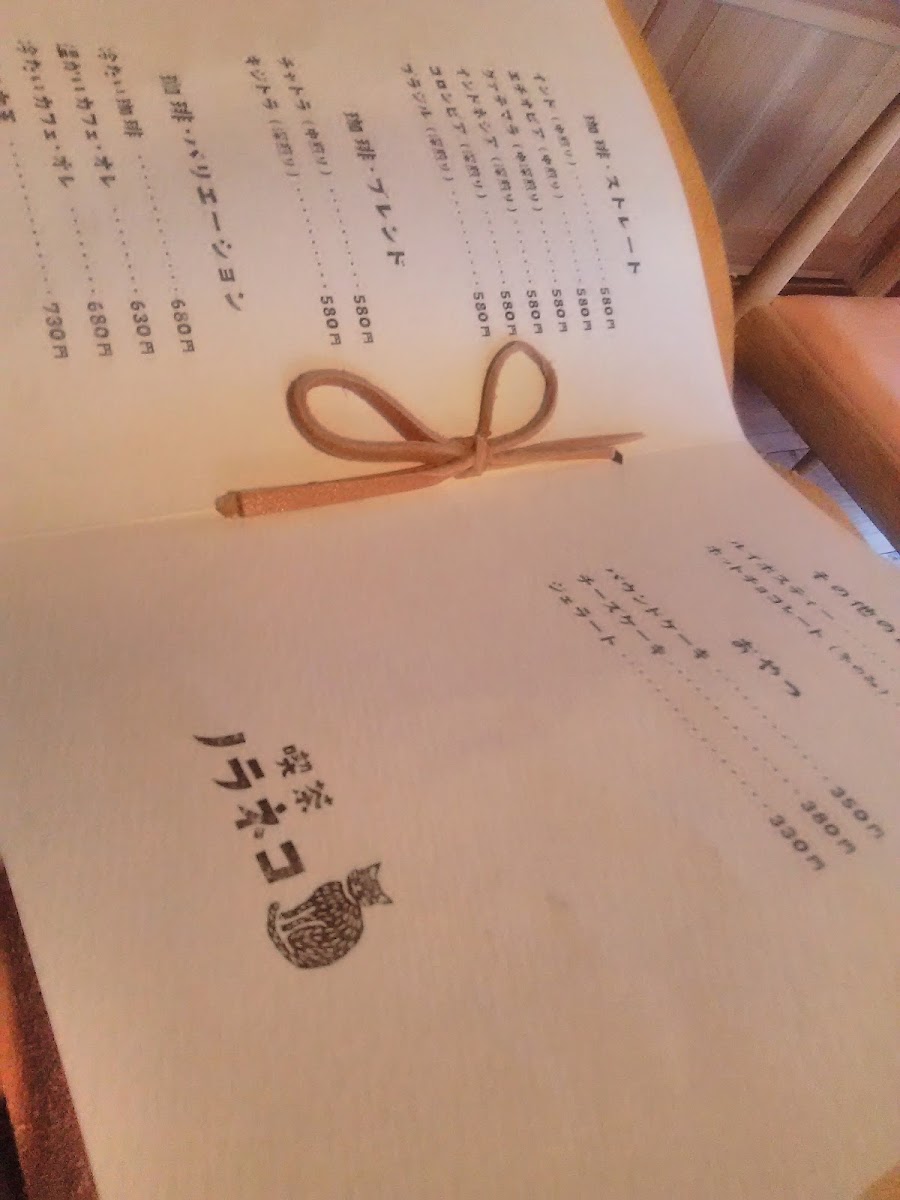 珈琲・ストレート
インド（中煎り）・・・・・・・580円
エチオピア（中煎り）・・・・・・580円
グァテマラ（中深煎り）・・・・・580円
インドネシア（深煎り）・・・・・580円
コロンビア（深煎り）・・・・・・580円
ブラジル（深煎り）・・・・・・・580円
珈琲・ブレンド
チャトラ（中煎り）・・・・・・・580円
キジトラ（深煎り）・・・・・・・580円
珈琲・バリエーション
冷たい珈琲・・・・・・・・・・680円
温かいカフェ・オレ・・・・・・・630円
冷たいカフェ・オレ・・・・・・・680円
・・・・・・・・・・730円
その他の
ルイボスティー・・・・
ホットチョコレート（冬のみ）
おやつ
パウンドケーキ・・・・・・・・350円
チーズケーキ・・・・・・・・・380円
ジェラート・・・・・・・・・・330円
喫茶
ノラネコ